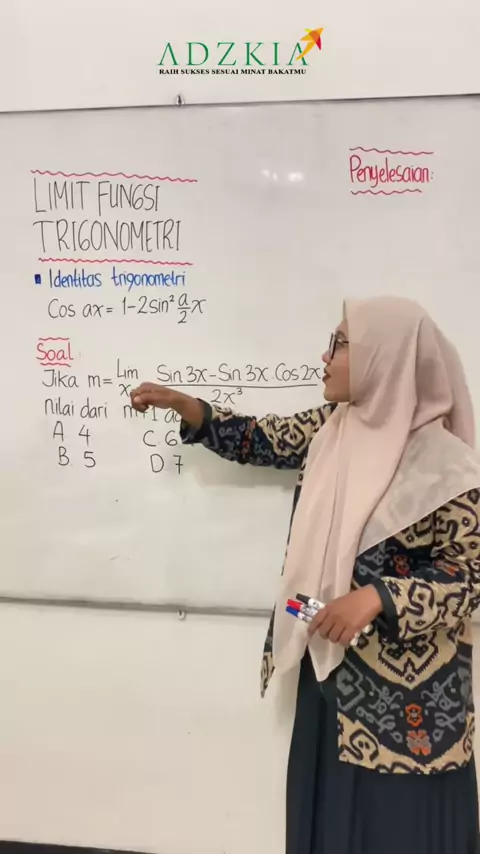 ADZKIA
RAIH SUKSES SESUAI MINAT BAKATMU
Penyelesaian:
LIMIT FUNGSI
TRIGONOMETRI
Identitas trigonometri
Cos ax = 1-2sin² a/2 x
Soal:
Jika m = Lim Sin 3x - Sin 3x . Cos 2x / 2x³
nilai dari m+1
A. 4 C. 6
B. 5 D. 7